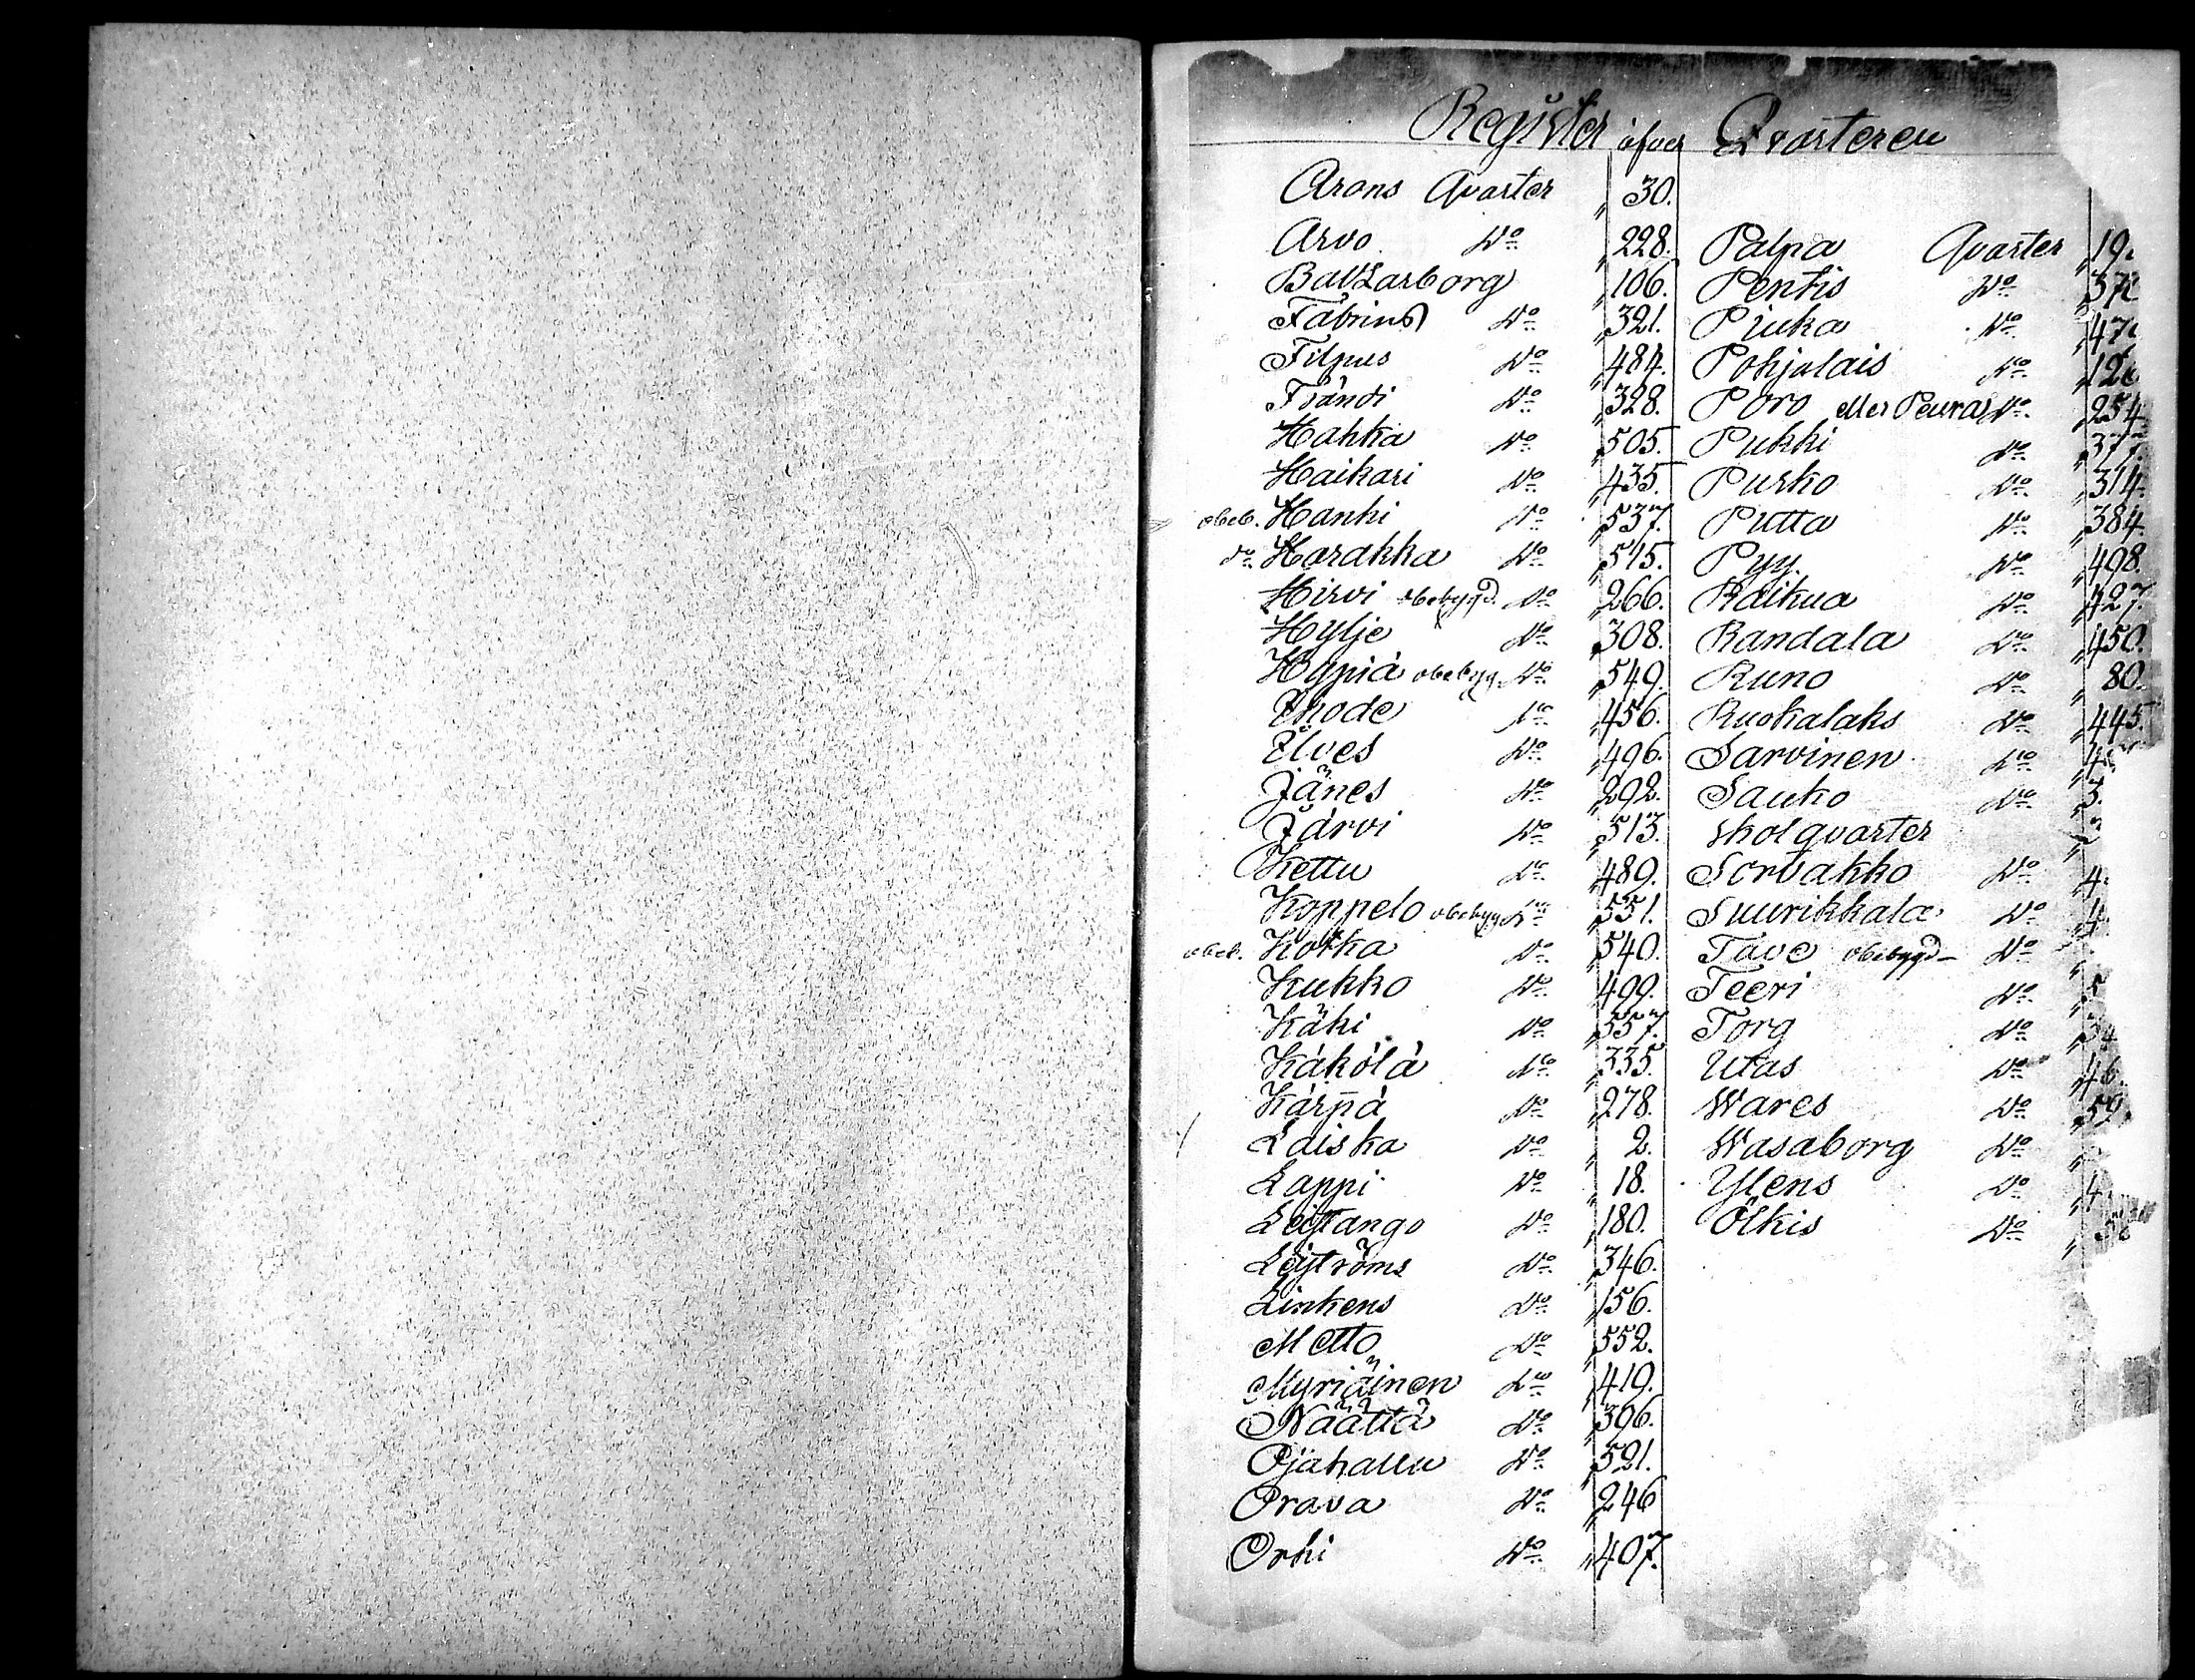 Register öfver Qvarteren
Arons Qvarter „ 30.
Arvo Do „ 228.
Baltzarborg „ 106.
Fabrins Do „ 321.
Filpus Do „ 484.
Frändi Do „ 328.
Hahka Do „ 505.
Haikari Do „ 435.
obeb. Hanhi Do „ 537.
do Harakka Do „ 515.
Hirvi obebygd. Do „ 266.
Hylje Do „ 308.
Hypiä obebyg. Do „ 549.
Ihode Do „ 456.
Ilves Do „ 496.
Jänes Do „ 292.
Järvi Do „ 513.
Kettu Do „ 489.
Koppelo obebyg Do „ 551.
obeb. Kotka Do „ 540.
Kukko Do „ 499.
Käki Do „ 557.
Käkölä Do „ 335.
Kärpä Do „ 278.
Laiska Do „ 2.
Lappi Do „ 18.
Leistango Do „ 180.
Leistroms Do „ 346.
Linkens Do „ 156.
Metto Do „ 552.
Myriäinen Do „ 419.
Näättä Do „ 396.
Ojahallu Do „ 521.
Orava Do „ 246
Orhi Do „ 407.
Palpa Qvarter „ 19
Pentis Do „ 37
Piuka Do „ 47
Pohjalais Do „ 12
Poro eller Peura Do „ 254
Pukki Do „ 377.
Purko Do „ 314.
Putta Do „ 384
Pyy. Do „ 498.
Raikua Do „ 427.
Randala Do „ 450.
Runo Do „ 80.
Ruokalaks Do „ 445.
Sarvinen Do „ 4
Sauko Do „ 3.
Skolqvarter „
Sorvakko Do „ 4.
Suurikkala Do „ 4.
Tave obebygd Do „
Teeri Do „ 5
Torg Do „ 34
Utas Do „ 46.
Wares Do „ 59.
Wasaborg Do „
Ylens Do „ 4
Ölkis Do „